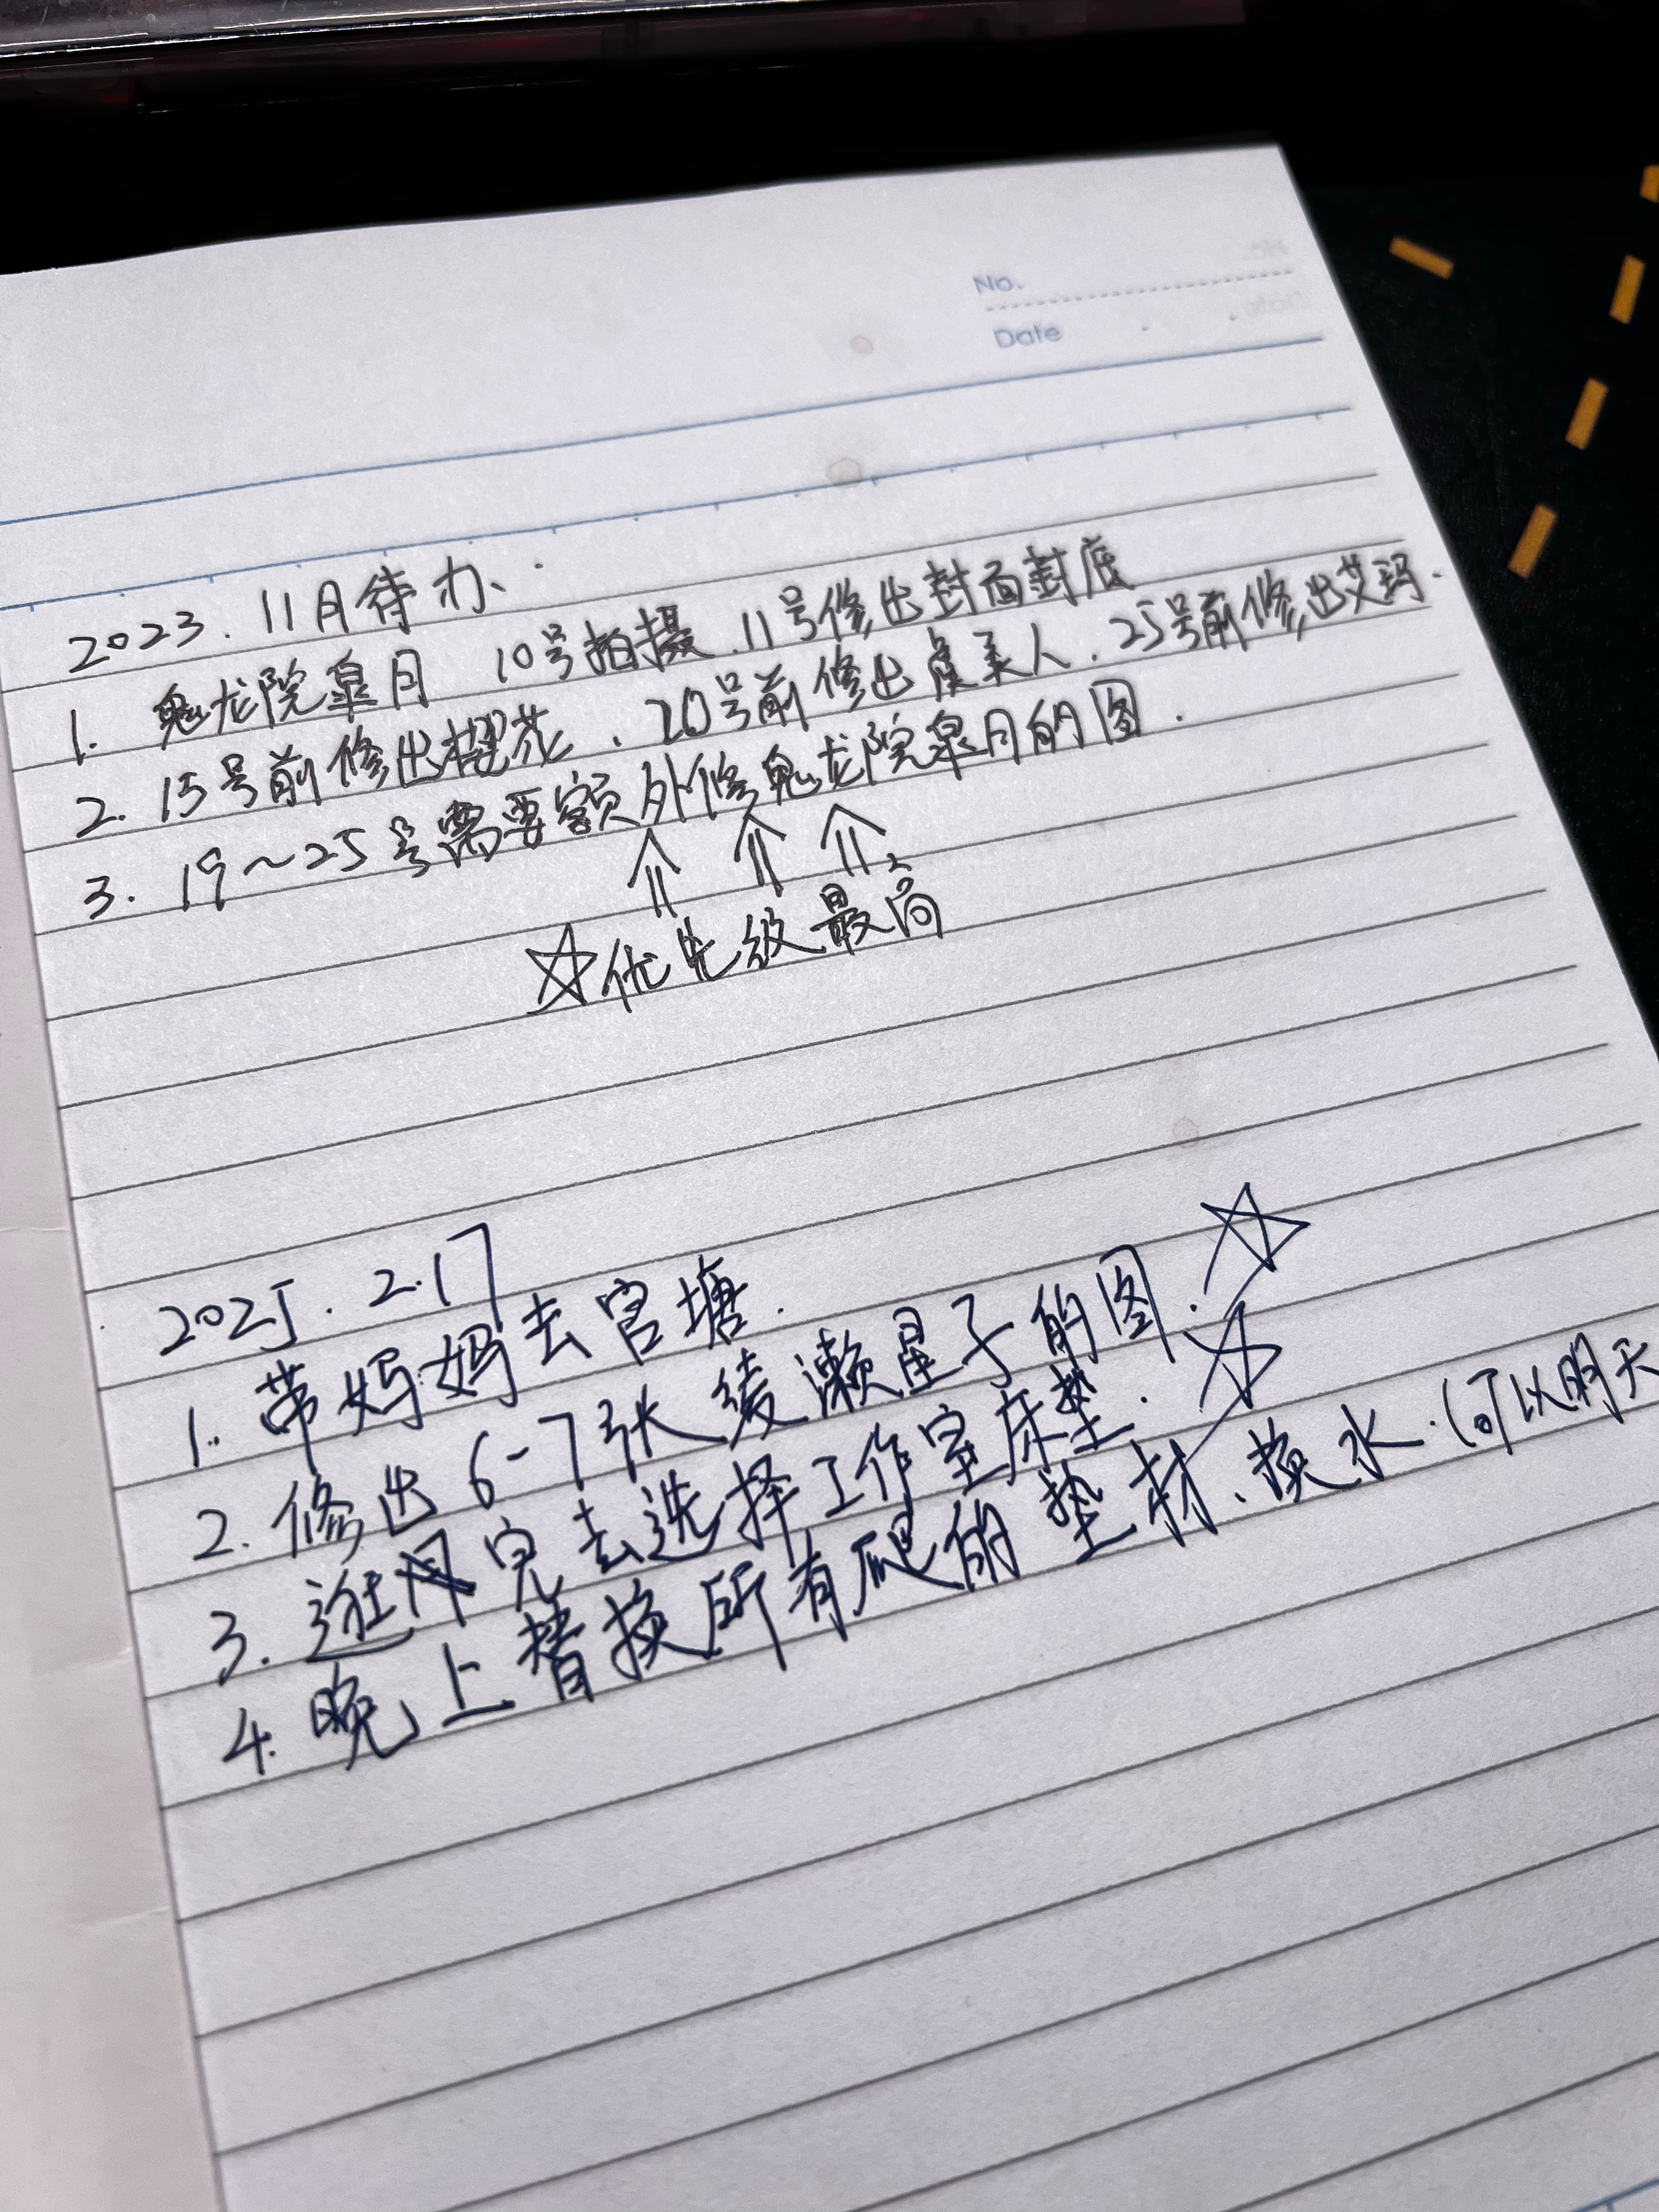 No.
Date
2023. 11月待办.
1. 鬼龙院皐月 10号拍摄. 11号修出封面封底
2. 15号前修出樱花. 20号前修出虞美人. 25号前修出艾玛.
3. 19~25号需要额外修鬼龙院皐月的图.
☆优先级最高
2025. 2.17
1. 带妈妈去官塘.
2. 修出6-7张绫濑星子的图. ☆
3. 逛完去选择工作室床垫. ☆
4. 晚上替换所有爬的垫材、换水.(可以明天